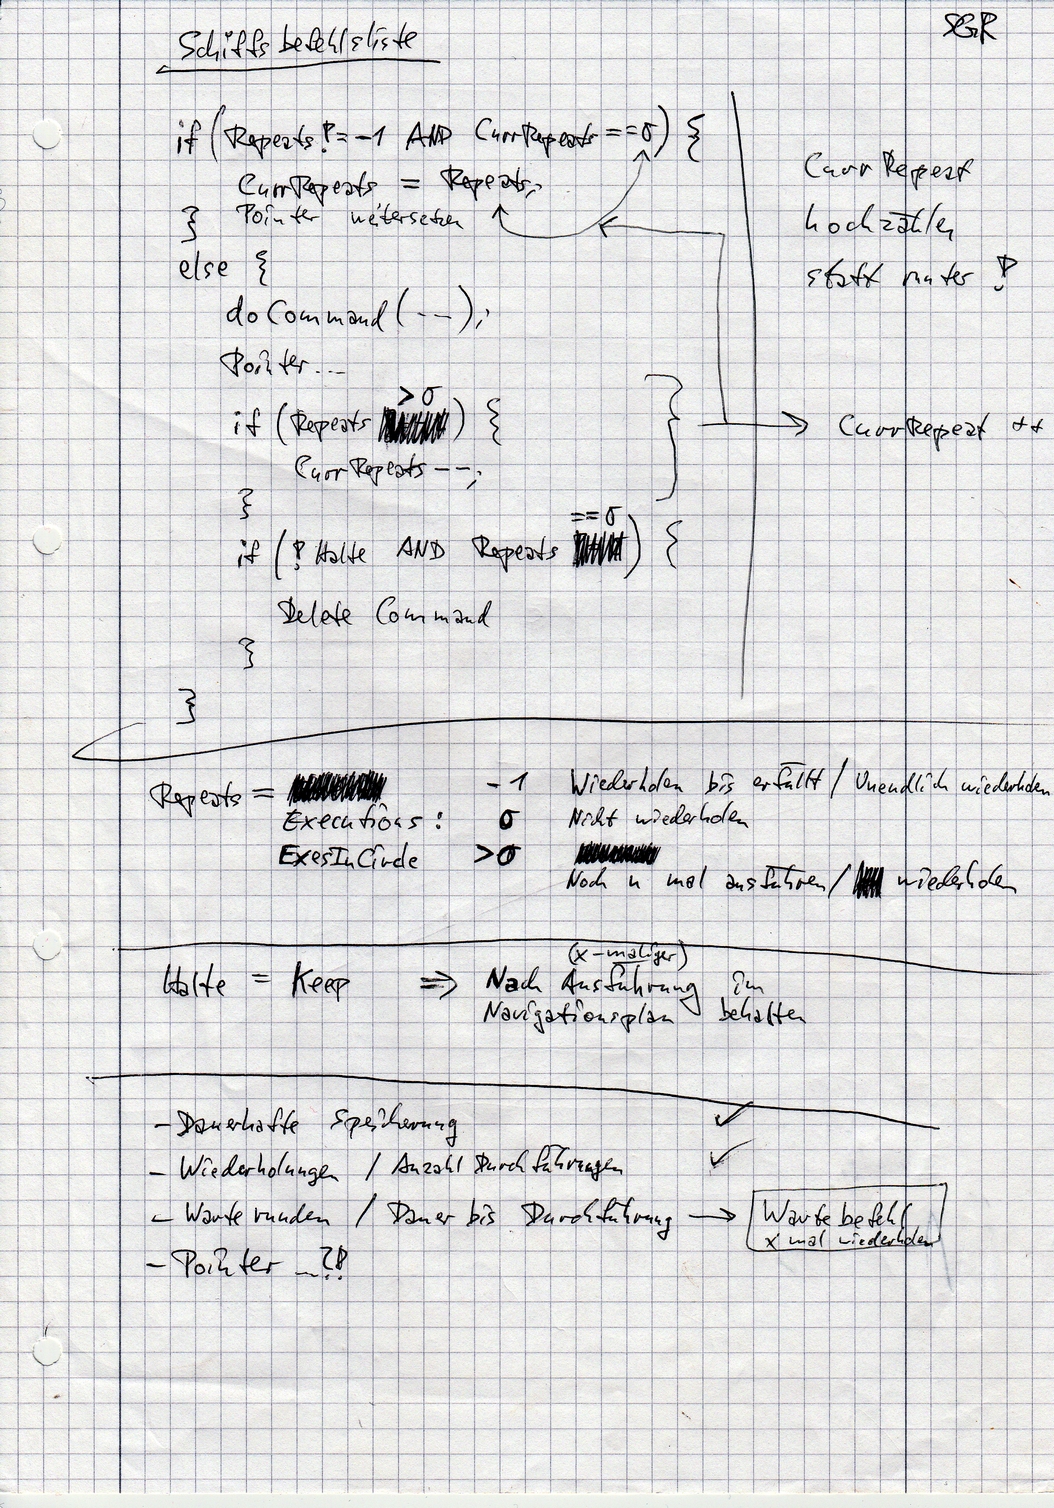 SGR
Schiffsbefehlsliste
if (Repeats != -1 AND CurrRepeats == 0) {
CurrRepeats = Repeats;
} Pointer weitersetzen
else {
doCommand (--);
Pointer ...
if (Repeats > 0) {
CurrRepeats --;
}
if (! Halte AND Repeats == 0) {
Delete Command
}
}
CurrRepeat
hochzählen
statt runter !
CurrRepeat ++
Repeats = -1 Wiederholen bis erfüllt / Unendlich wiederholen
Executions: 0 Nicht wiederholen
ExesInCircle >0
Noch n mal ausführen / wiederholen
(x-maliger)
Halte = Keep => Nach Ausführung im
Navigationsplan behalten
- Dauerhafte Speicherung ✓
- Wiederholungen / Anzahl Durchführungen ✓
- Warterunden / Dauer bis Durchführung → Wartebefehl
x mal wiederholen
- Pointer ...?!